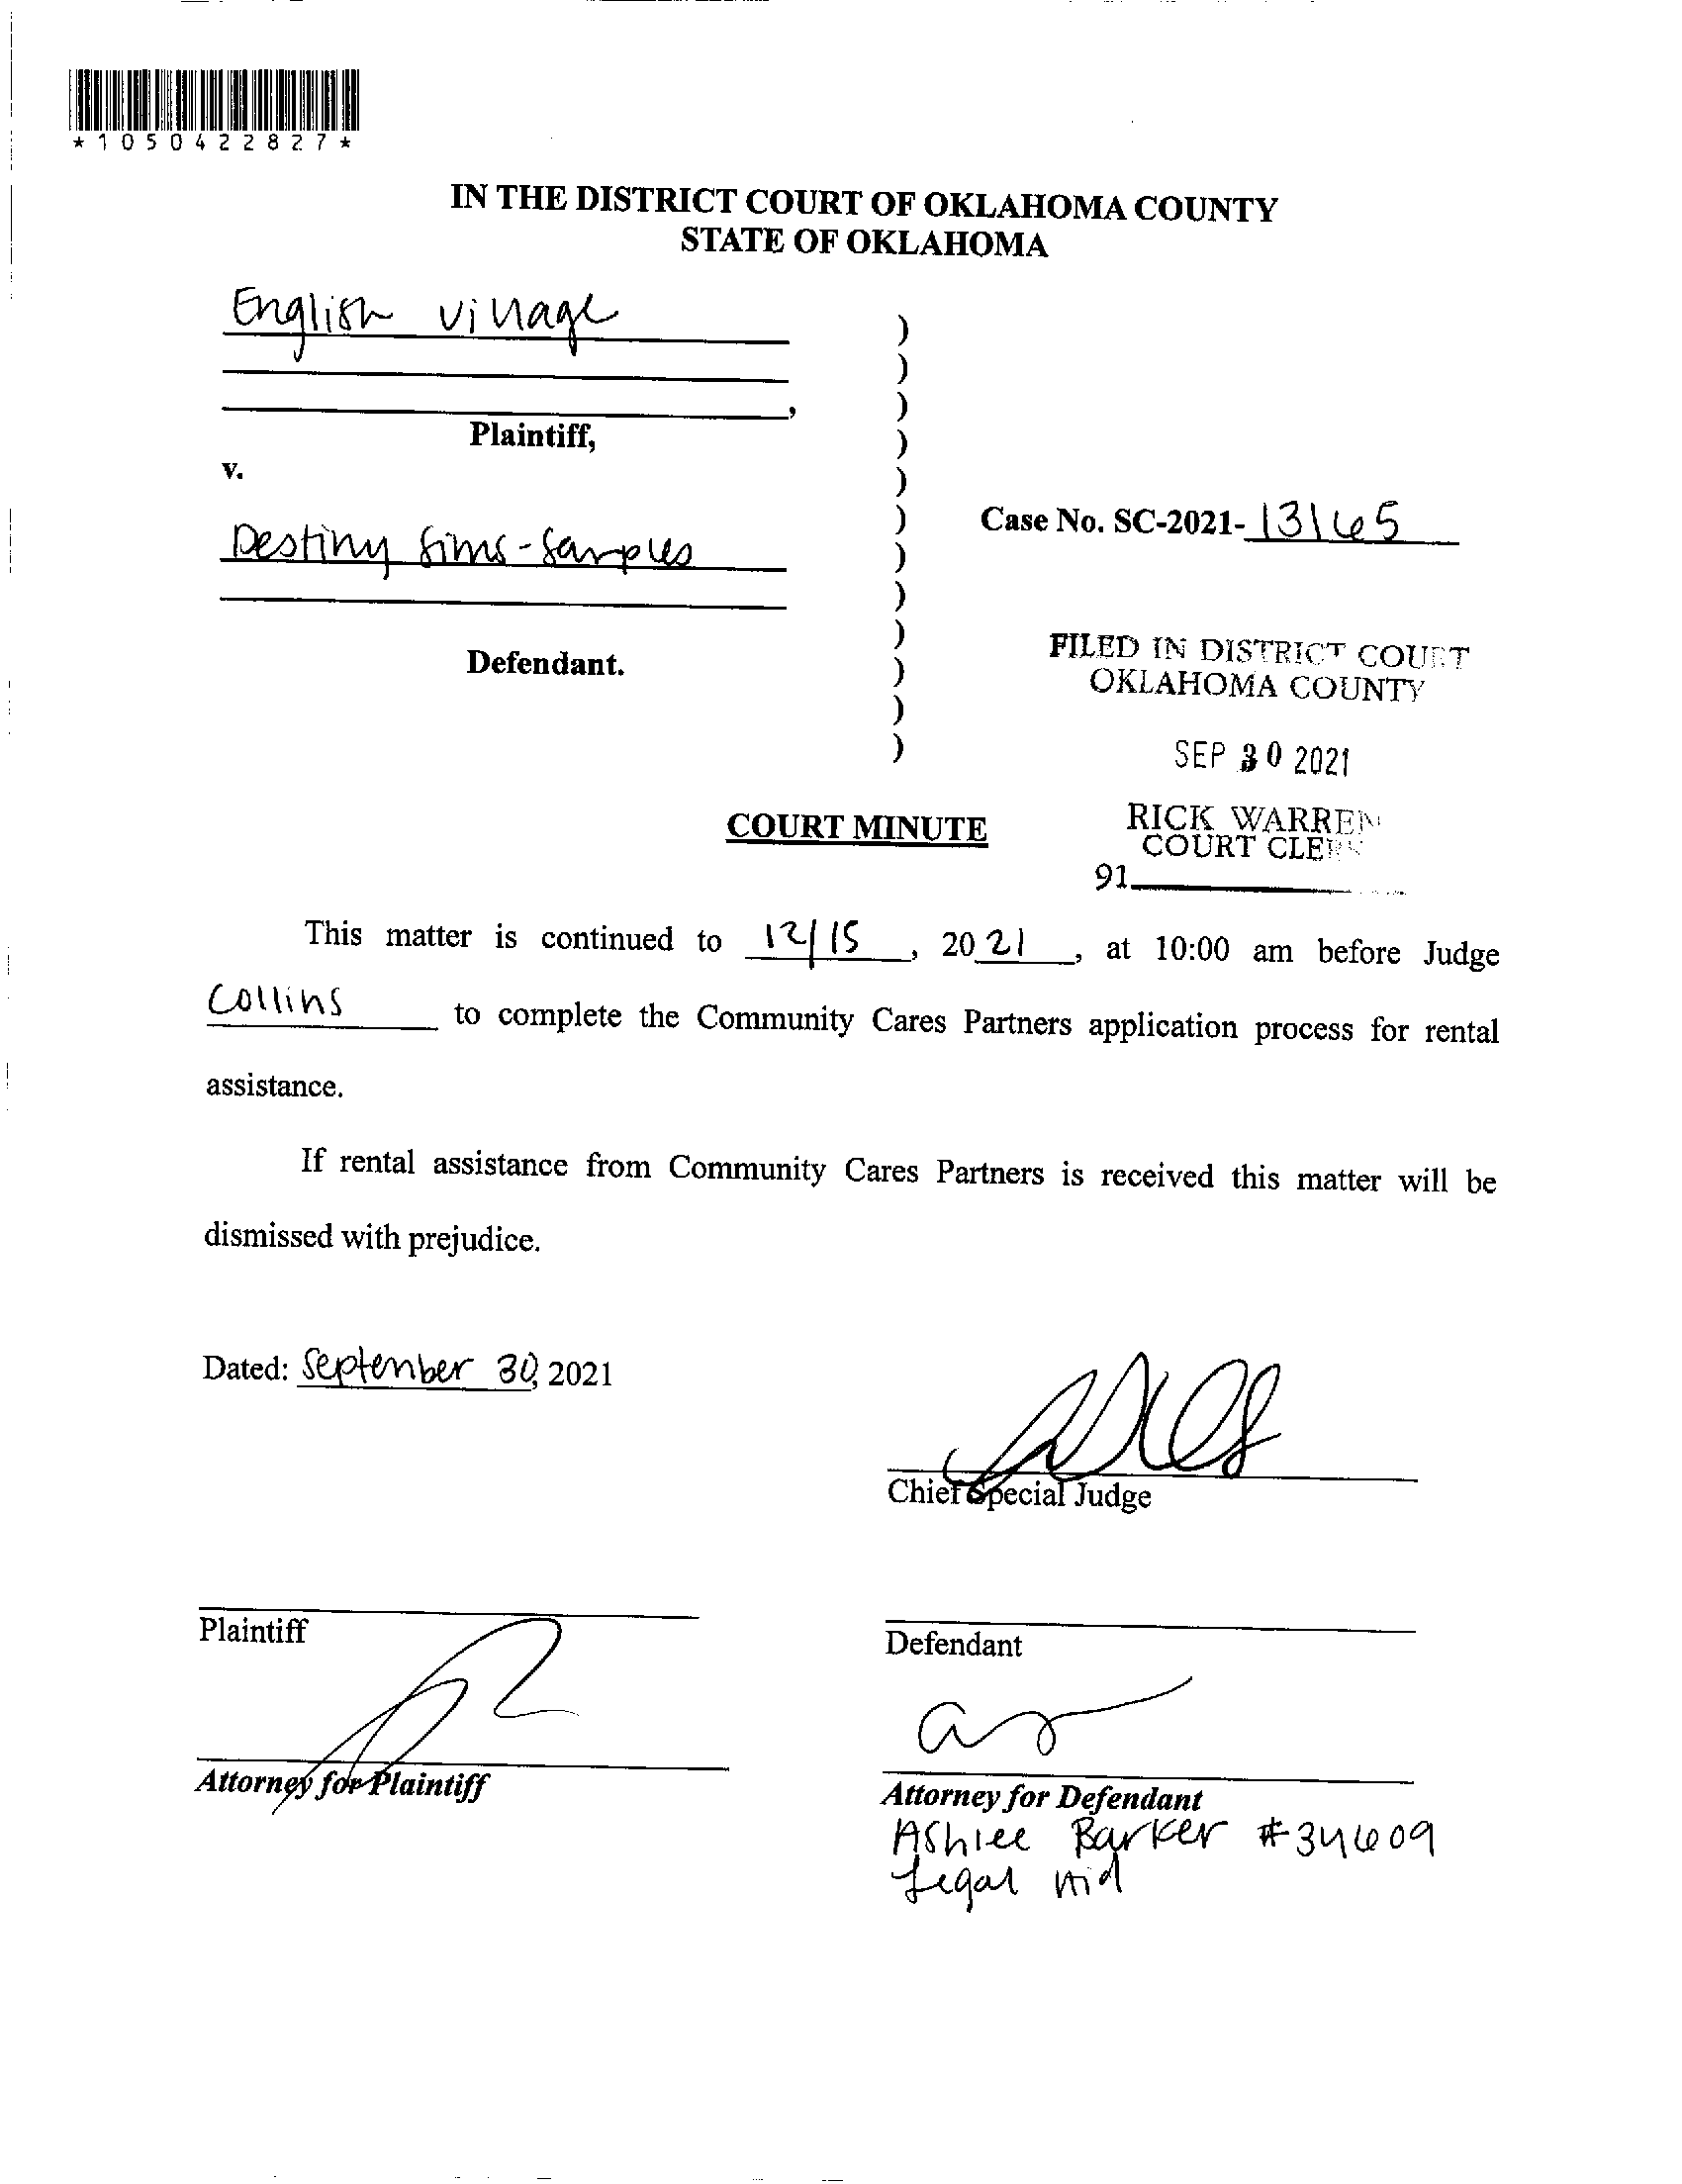 *1050422827*
IN THE DISTRICT COURT OF OKLAHOMA COUNTY
STATE OF OKLAHOMA
English village
,
Plaintiff,
v.
Destiny Sims-Samples
Defendant.
)
)
)
)
)
)
)
)
)
)
)
)
Case No. SC-2021- 13165
FILED IN DISTRICT COURT
OKLAHOMA COUNTY
SEP 30 2021
RICK WARREN
COURT CLERK
91
COURT MINUTE
This matter is continued to 12/15, 2021, at 10:00 am before Judge
Collins to complete the Community Cares Partners application process for rental
assistance.
If rental assistance from Community Cares Partners is received this matter will be
dismissed with prejudice.
Dated: September 30, 2021
Chief Special Judge
Plaintiff
Defendant
Attorney for Plaintiff
Attorney for Defendant
Ashlee Barker #34609
Legal Aid